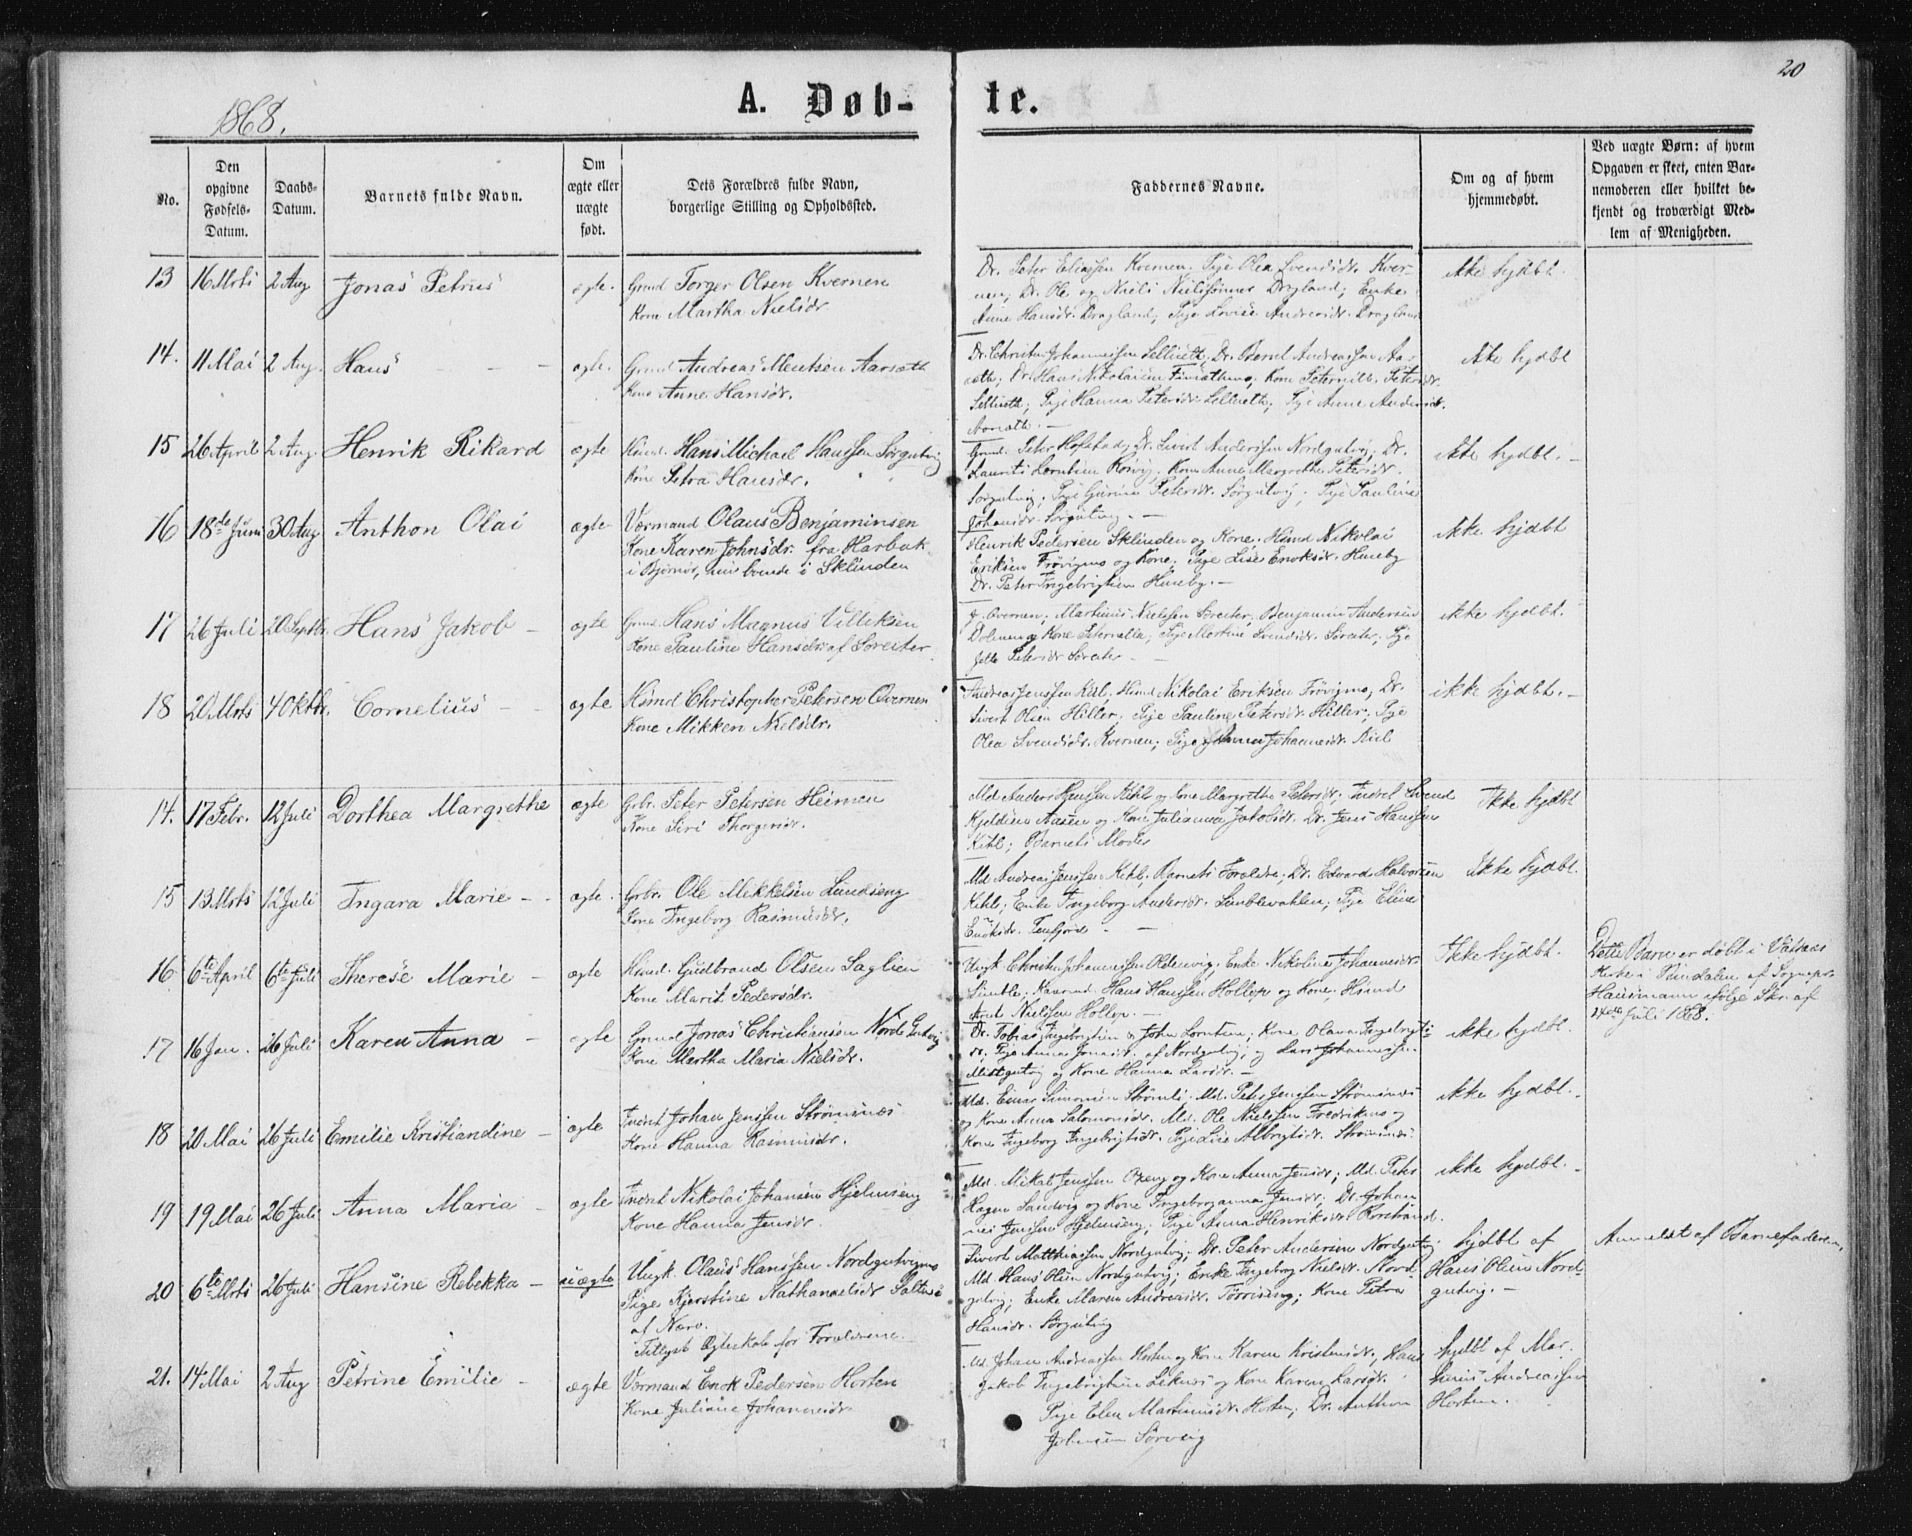 20
1868.
A. Døb- te.
No.
Den opgivne Fødsels-Datum.
Daabs-Datum.
Barnets fulde Navn.
Om ægte eller uægte født.
Dets Forældres fulde Navn, borgerlige Stilling og Opholdssted.
Faddernes Navne.
Om og af hvem hjemmedøbt.
Ved uægte Børn: af hvem Opgaven er skeet, enten Barnemoderen eller hvilket bekjendt og troværdigt Medlem af Menigheden.
13 16 Mrts 2 Aug Jonas Petrus ægte. Grmd Torger Olsen Kvernen
Kone Martha Nielsdr.
Dr. Peter Eliassen Kvernen. Pige Olea Svendsdr. Kver-
nen; Dr. Ole og Niels Nielssønner Dragland; Enke
Anne Hansdr. Dragland; Pige Lovise Andreasdr. Dragland
ikke hjdbt.
14. 11 Mai 2 Aug. Hans - - - ægte. Grmd Andreas Mentsen Aarsæth
Kone Anne Hansdr.
Dr. Christen Johannessen Selliæth; Dr. Bernt Andreassen Aar-
sæth; Dr. Hans Nikolaisen; Kone Peternille Petersdr.
Selliæth; Pige Hanna Petersdr. Selliæth; Pige Anne Andreasdr.
Aarsæth. -
ikke hjdbt
15 26 April 2 Aug. Henrik Rikard ægte Husmd. Hans Michael Hanssen Sørgutvig
Kone Petra Hansdr.
Grmd. Peter Hofstad; Dr. Sivert Anderssen Nordgutvig; Dr.
Laurits Lorntsen; Kone Anne Margrethe Petersdr.
Sørgutvig; Pige Gurine Petersdr. Sørgutvig; Pige Pauline
Johansdr. Sørgutvig. -
ikke hjdbt. -
16 18de Juni 30 Aug Anthon Olai ægte- Værmand Olaus Benjaminsen
Kone Karen Johnsdr. fra Harbak
i Bjørnør, nu boende i Sklinden
Henrik Pedersen Sklinden og Kone. Husmd Nikolai
Eriksen Frøvigmo og Kone; Pige Lise Enoksdr. Huseby
Dr. Peter Ingebrigtsen Huseby. -
ikke hjdbt
17 26 Juli 20 Septbr. Hans Jakob - ægte Grmd. Hans Magnus Villeksen
Kone Pauline Hansdr. af Soreiter
Martinus Nielssen Soreiter, Benjamin Andersen
og Kone Peternelia; Pige Martine Svendsdr. Soreiter; Pige
Petersdr Soreiter - -
ikke hjdbt.
18 20 Mrts 4 Oktbr. Cornelius - - ægte Husmd Christopher Petersen Overnen
Kone Mikken Nielsdr.
Andreas Jenssen Kiil. Husmd Nikolai Eriksen Frøvigmo; Dr.
Sivert Olsen Hiller; Pige Pauline Petersdr. Hiller; Pige
Olea Svendsdr. Kvernen; Pige Johannesdr. Kiil
ikke hjdbt. -
14. 17 Febr. 12 Juli Dorthea Margrethe ægte Grbr. Peter Petersen Heimen
Kone Siri Thorgersdr.
Md Anders Jenssen Kihl og Kone Margrethe Petersdr; Indrst Svend
Kjeldsen Aasen og Kone Julianna Jakobsdr. Dr. Jens Hanssen
Kihl; Barnets Moder
Ikke hjdbt
15 13 Mrts 12 Juli Ingara Marie - - ægte. Grbr. Ole Mikkelsen Lundseng
Kone Ingeborg Rasmusdr.
Md Andreas Jenssen Kihl, Barnets Forældre; Dr. Edvard Halvorsen
Kihl; Enke Ingeborg Andersdr.; Pige Eline
Enoksdr. Terfjord - -
Ikke hjdbt.
16 6te April 6te Juli Therese Marie - ægte Husmd. Gudbrand Olsen Saglien
Kone Marit Pedersdr.
Ungk. Christen Johannessen Oldervig; Enke Nikoline Johannesdr
Simble. Hans Hanssen Hollup og Kone; Husmd
Arnt Nielssen Hollup. -
Ikke hjdbt.
Dette Barn er døbt i
Kirke i Susendalen af Sognepr.
Hausmann ifølge Skr. af
Juli 1868.
17 16 Jan. 26 Juli Karen Anna - ægte Grmd Jonas Christiansen Nordgutvig
Kone Martha Maria Nielsdr.
Dr. Tobias Ingebrigtsen & John Lorntsen; Kone Olava Ingebrigts-
dr; Pige Anna Jonasdr. af Nordgutvig; og Lars Johannessen
Mittgutvig og Kone Hanna Larsdr. -
ikke hjdbt.
18 20 Mai 26 Juli Emilie Kristiandine - ægte Indrst Johan Jenssen Strømsnes
Kone Hanna Rasmusdr.
Md. Einar Simonsen Strømli. Md. Peter Jenssen Strømsnes
og Kone Anna Salomonsdr. Md. Ole Nielssen Fredriksmo og
Kone Ingeborg Ingebrigtsdr. Pige Lise Albrigtsdr. Strømsnes
ikke hjdbt. -
19 19 Mai 26 Juli Anna Maria - ægte Indrst Nikolai Johansen Hjelmseng
Kone Hanna Jensdr.
Md. Mikal Jenssen Oxeng og Kone Anna Jensdr; Md. Peter
Hagen Sandvig og Kone Ingeboranna Jensdr; Dr. Johan
nes Jenssen Hjelmseng; Pige Anna Henriksdr. Rorstrand.
ikke hjdbt. -
20 6te Mrts 26 Juli Hansine Rebekka - uægte Ungk. Olaus Hanssen Nordgutvigmo
Pige Kjerstine Nathanaelsdr Saltens
af Nærø.
Tillyst Ægteskab for Forældrene.
Sivert Matthiassen Nordgutvig; Dr. Peter Andersen Nordgutvig
Md. Hans Olsen Nordgutvig; Enke Ingeborg Nielsdr. Nord-
gutvig; Enke Maren Andreasdr. Torrising; Kone Petra
Hansdr. Sørgutvig
hjdbt af
Hans Olsen Nord-
gutvig. -
Anmeldt af Barnefaderen.
21. 14 Mai 2 Aug Petrine Emilie - ægte Værmand Enok Pedersen Horten
Kone Juliane Johannesdr.
Md. Johan Andreassen Horten og Kone Karen Kristensdr, Hans
Jakob Ingebrigtsen Leknes og Kone Karen Larsdr.
Pige Elen Martinusdr. Horten; Dr. Anthon
Johnsen Sørvig
hjdbt af Mar-
thinus Andreassen
Horten.